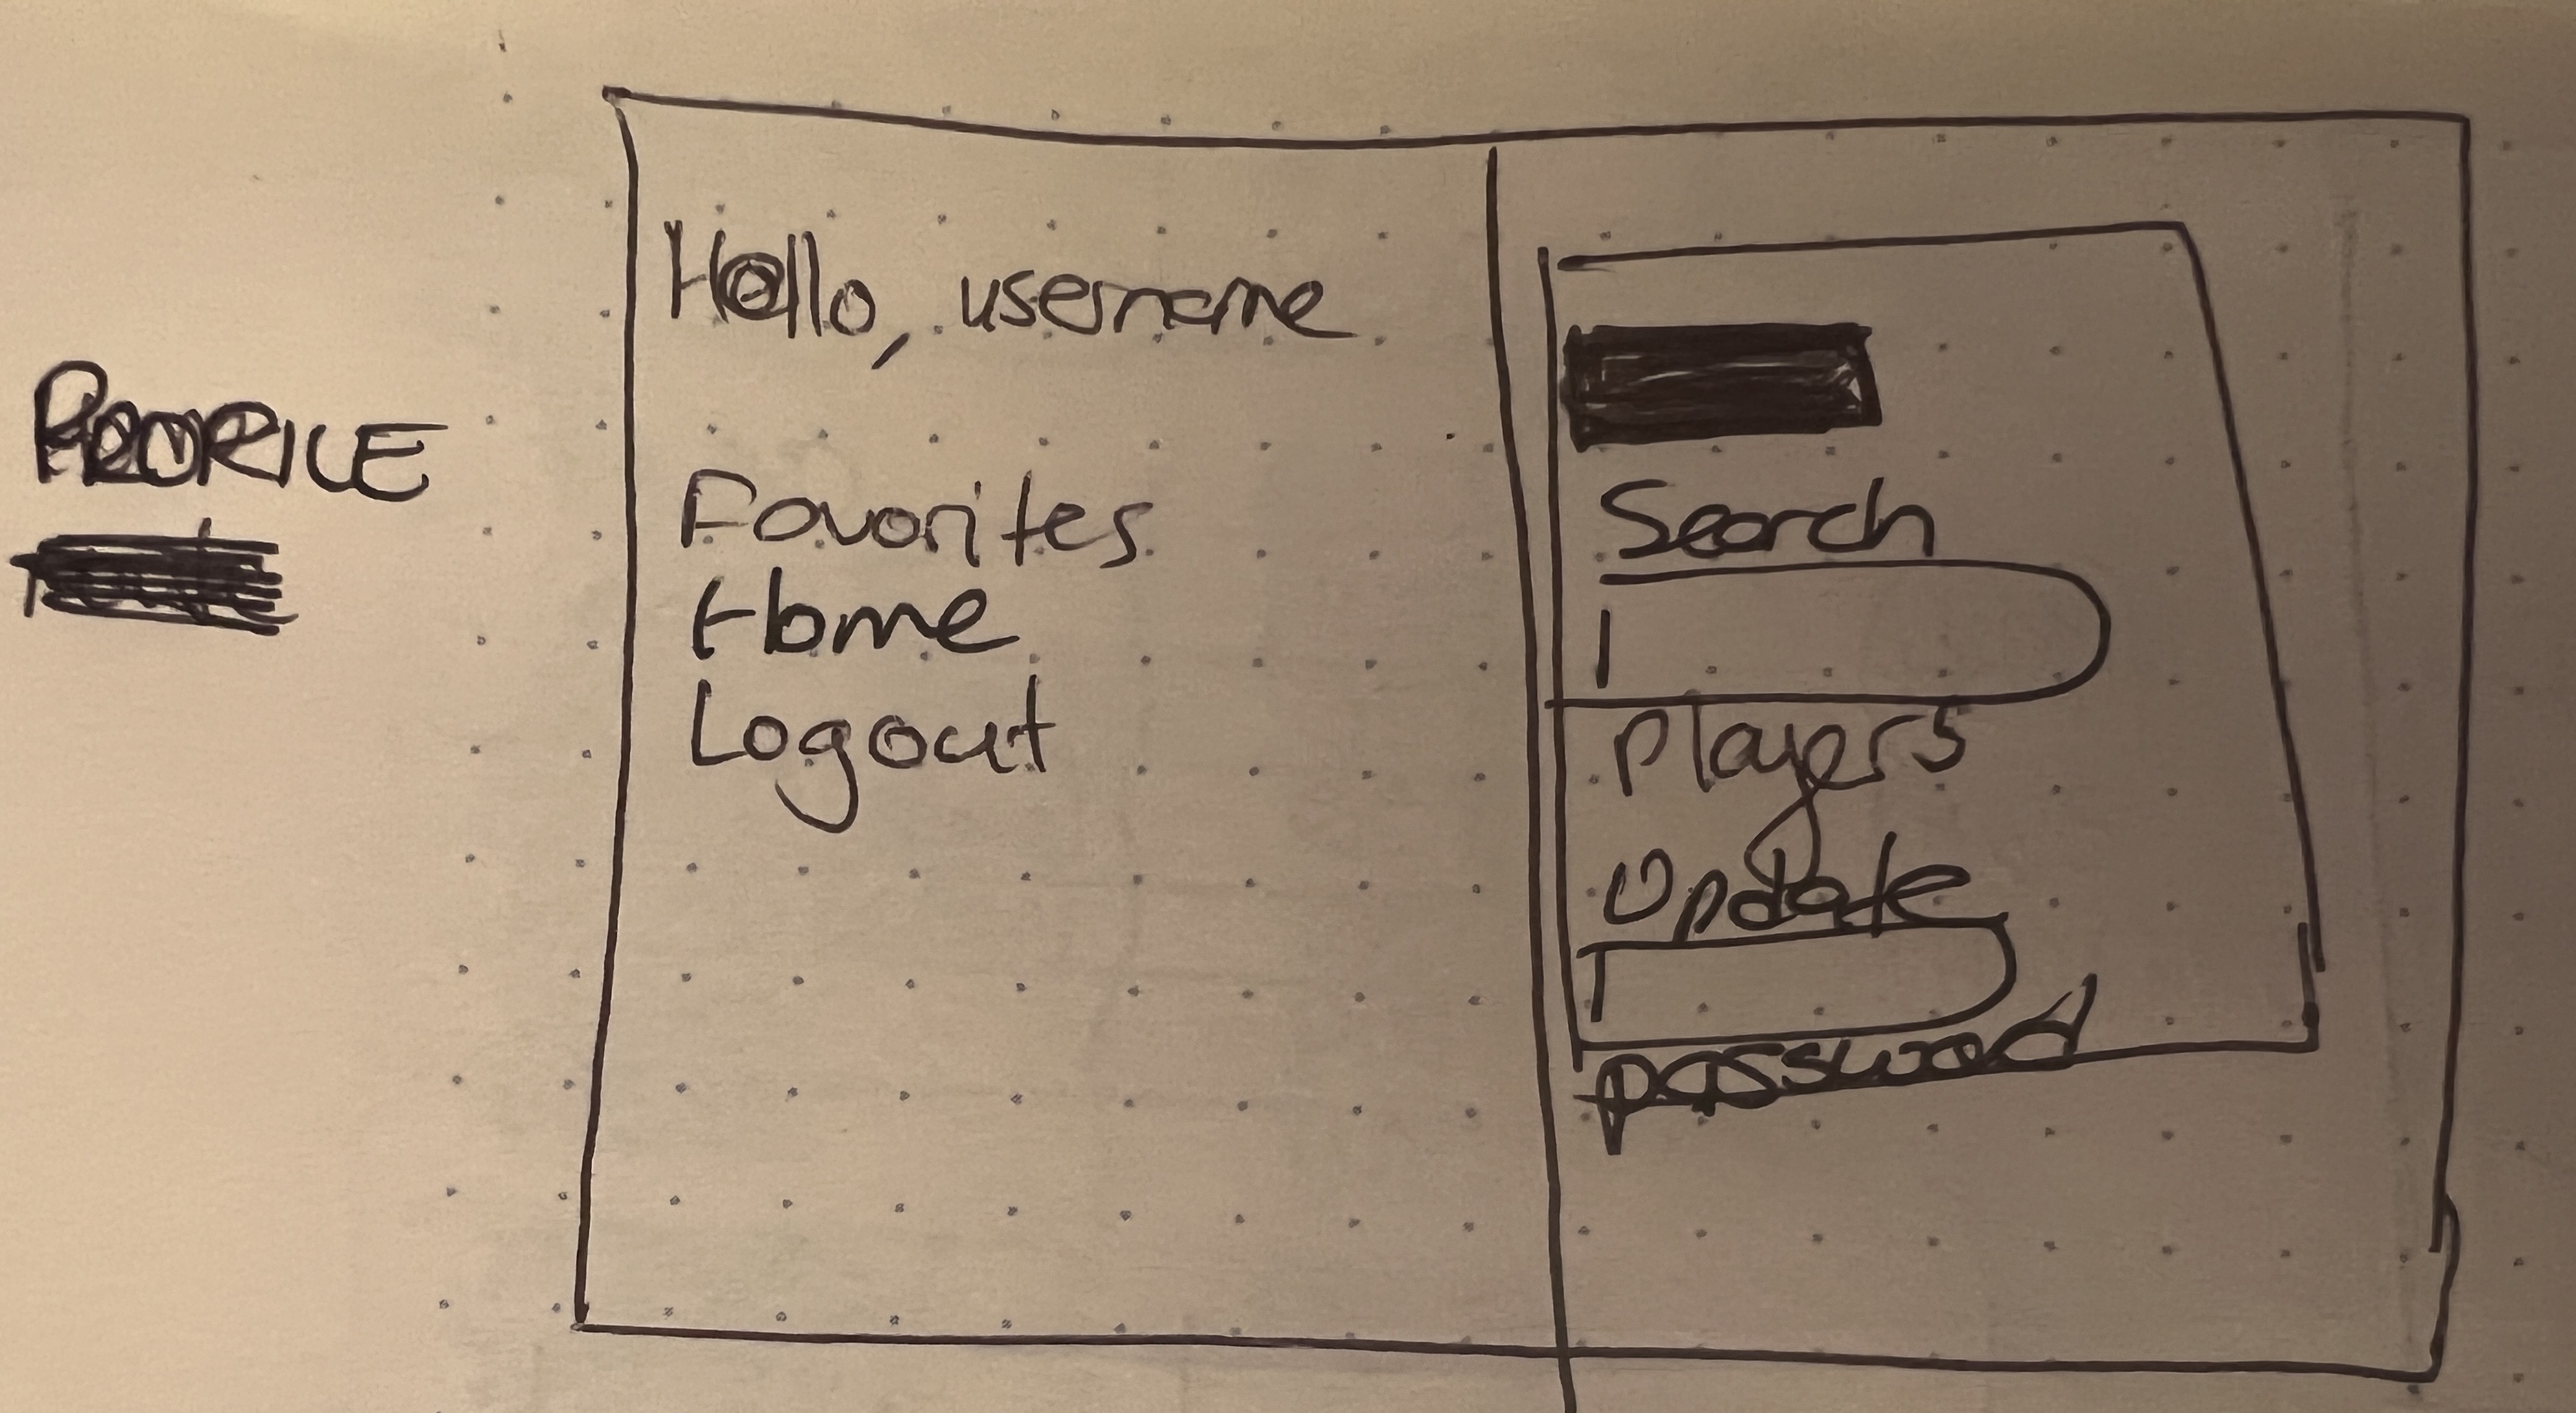 PROFILE
Hello, username
Favorites
Home
Logout
Search
players
Update
password